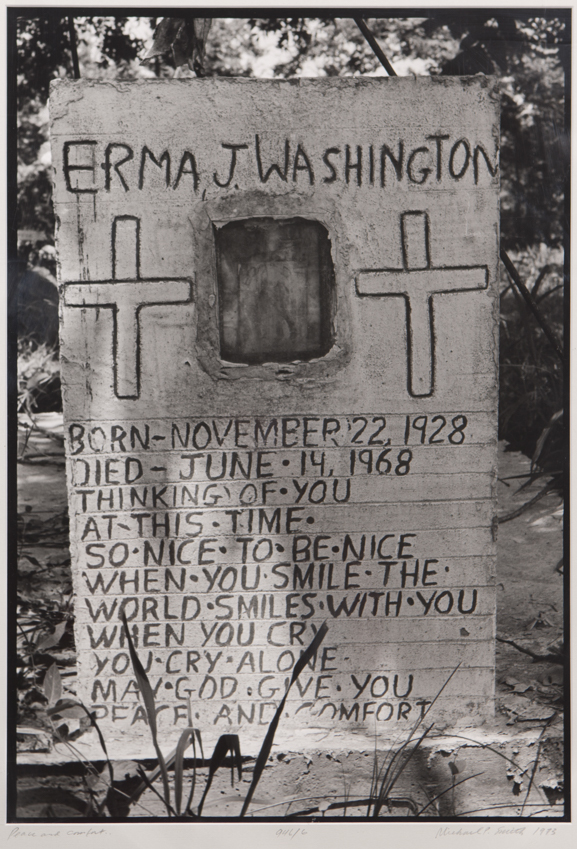 ERMA J. WASHINGTON
BORN-NOVEMBER 22, 1928
DIED - JUNE · 14, 1968
THINKING OF · YOU
AT · THIS · TIME ·
SO · NICE · TO · BE · NICE
WHEN · YOU · SMILE · THE ·
WORLD · SMILES · WITH · YOU
WHEN YOU CRY
YOU · CRY · ALONE
MAY · GOD · GIVE · YOU
PEACE · AND · COMFORT
Peace and comfort. Michael P. Smith 1983